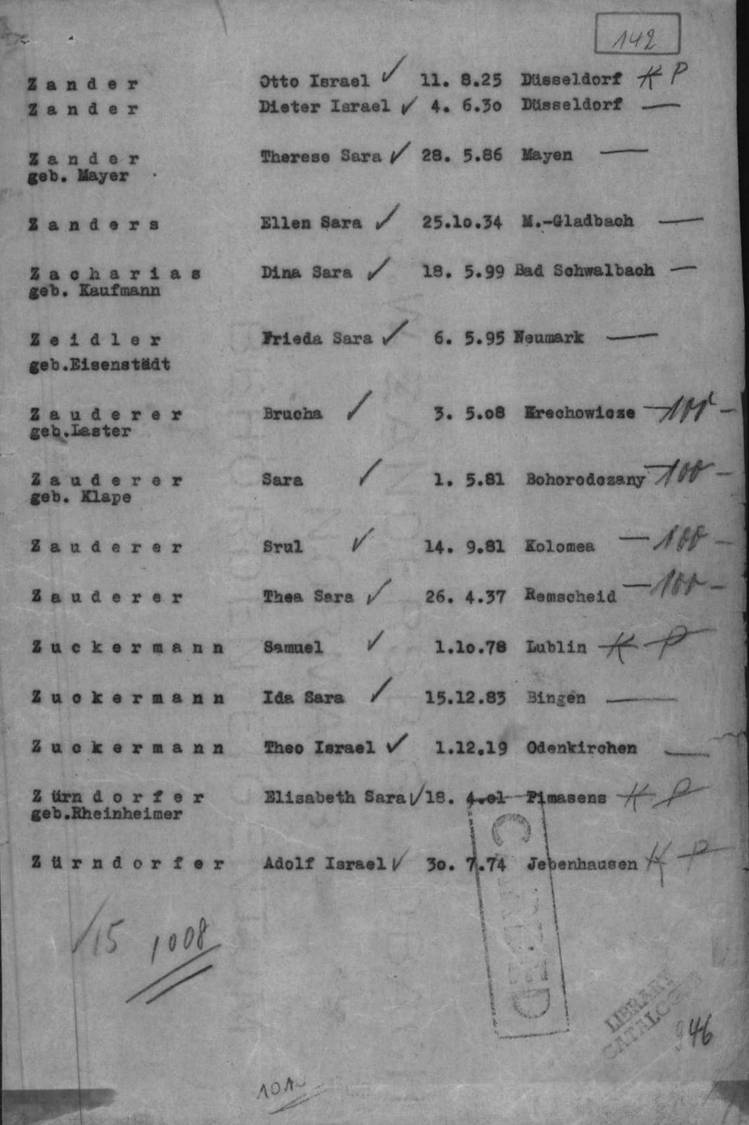 142
Zander Otto Israel ✓ 11. 8.25 Düsseldorf K P
Zander Dieter Israel ✓ 4. 6.3o Düsseldorf —
Zander Therese Sara ✓ 28. 5.86 Mayen —
geb. Mayer
Zanders Ellen Sara ✓ 25.1o.34 M.-Gladbach —
Zacharias Dina Sara ✓ 18. 5.99 Bad Schwalbach —
geb. Kaufmann
Zeidler Frieda Sara ✓ 6. 5.95 Neumark —
geb.Eisenstädt
Zauderer Brucha ✓ 3. 5.o8 Krechowicze —100—
geb.Laster
Zauderer Sara ✓ 1. 5.81 Bohorodczany —100—
geb. Klape
Zauderer Srul ✓ 14. 9.81 Kolomea —100—
Zauderer Thea Sara ✓ 26. 4.37 Remscheid —100—
Zuckermann Samuel ✓ 1.1o.78 Lublin K P
Zuckermann Ida Sara ✓ 15.12.83 Bingen —
Zuckermann Theo Israel ✓ 1.12.19 Odenkirchen —
Zürndorfer Elisabeth Sara ✓ 18. 4.o1 Pimasens K P
geb.Rheinheimer
Zürndorfer Adolf Israel ✓ 3o. 7.74 Jebenhausen K P
✓15 1008
CARDED
LIBRARY
946
101